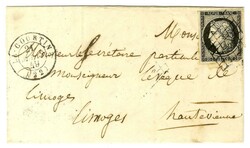 LA COURTINE
(22)
Monsieur
le Secrétaire particulier
Monseigneur l'évêque de
Limoges
Limoges
hautevienne